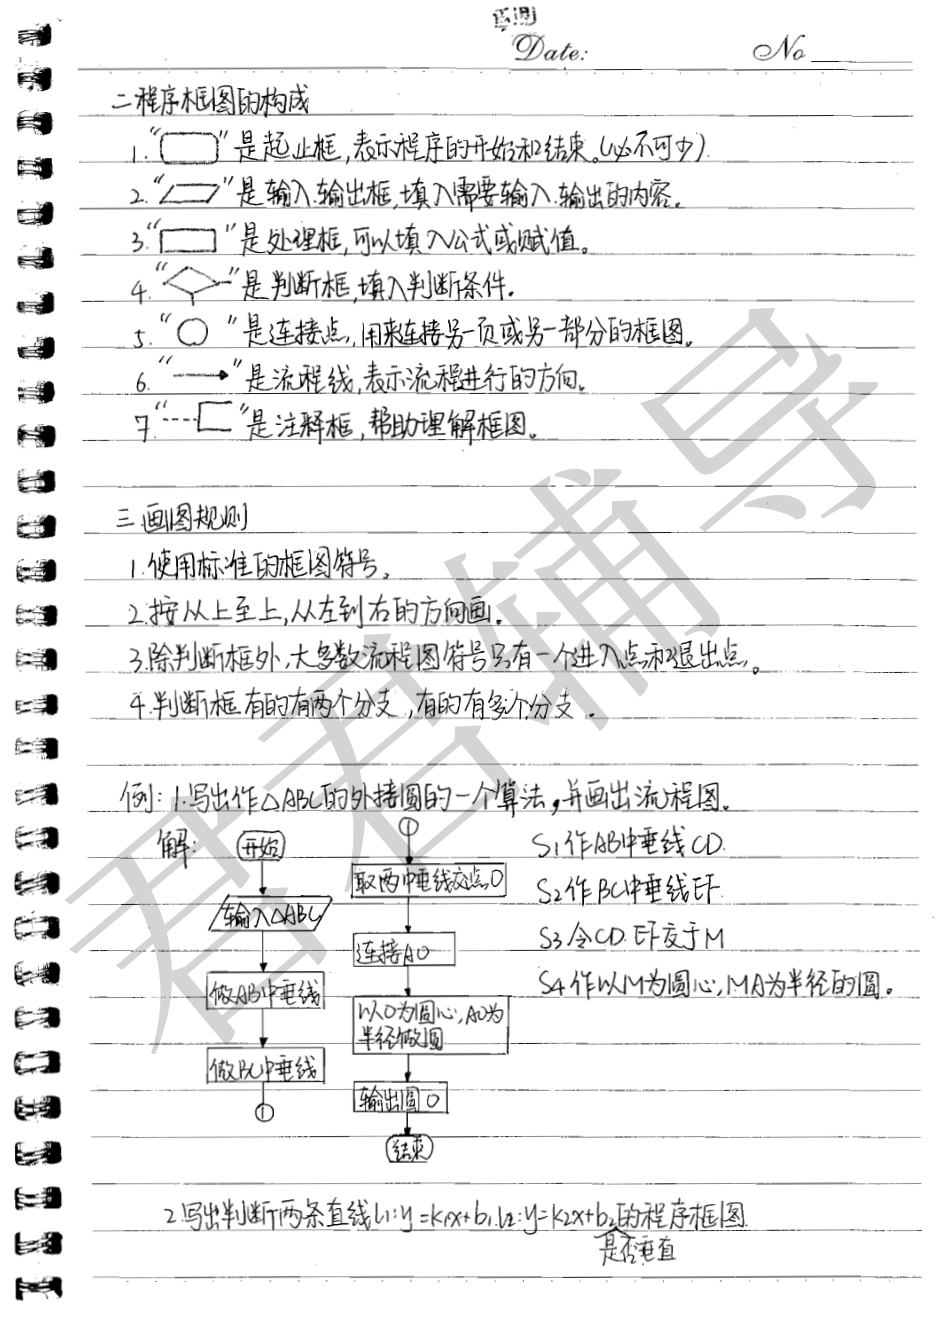 Date:
No
二程序框图的构成
1.“ ”是起止框,表示程序的开始和结束。(必不可少)
2.“ ”是输入.输出框,填入需要输入.输出的内容。
3.“ ”是处理框,可以填入公式或赋值。
4.“ ”是判断框,填入判断条件.
5.“ ”是连接点,用来连接另一页或另一部分的框图。
6.“ ”是流程线,表示流程进行的方向。
7.“ ”是注释框,帮助理解框图。
三画图规则
1.使用标准的框图符号。
2.按从上至上,从左到右的方向画。
3.除判断框外,大多数流程图符号只有一个进入点和退出点。
4.判断框有的有两个分支,有的有多个分支.
例:1.写出作△ABC的外接圆的一个算法,并画出流程图。
解:
开始
输入△ABC
做AB中垂线
做BC中垂线
①
①
取两中垂线交点O
连接AO
以O为圆心,AO为
半径做圆
输出圆O
结束
S1作AB中垂线CD.
S2作BC中垂线EF.
S3令CD.EF交于M
S4作以M为圆心,MA为半径的圆。
2.写出判断两条直线l1:y=k1x+b1.l2:y=k2x+b2的程序框图.
是否垂直
君君辅导